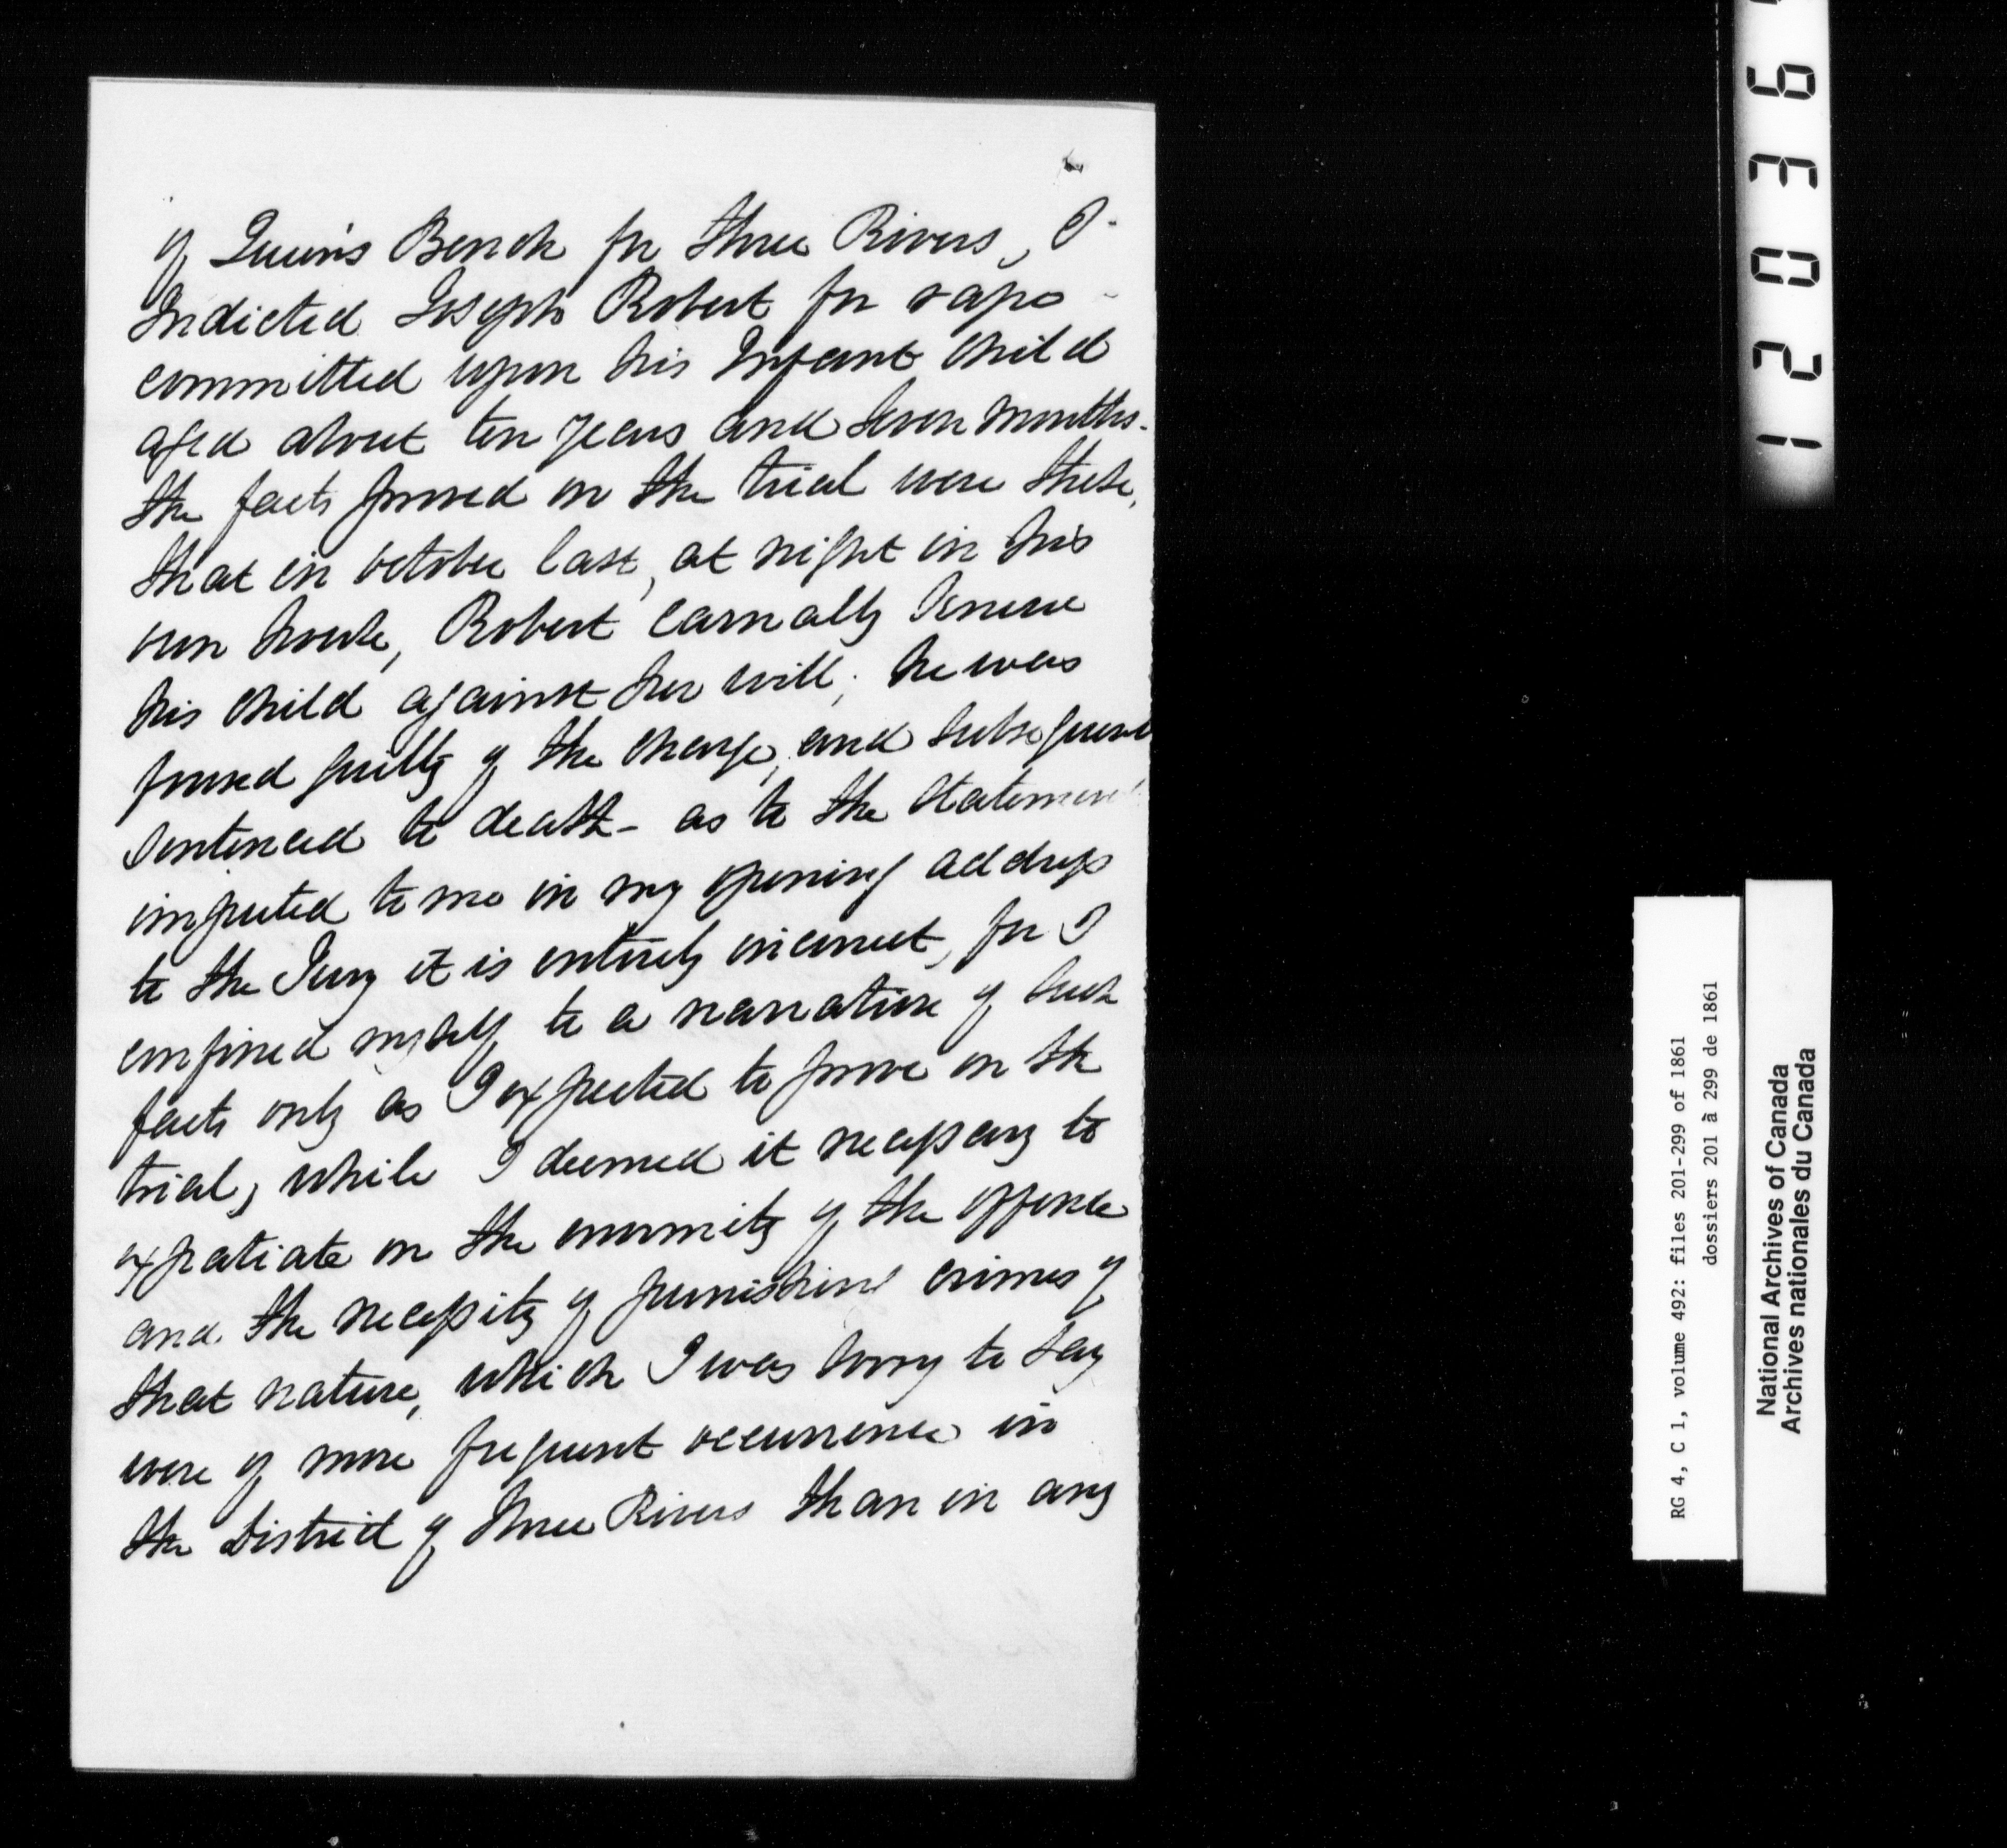 of Queen's Bench for Three Rivers, I
Indicted Joseph Robert for rape
committed upon his Infant Child
aged about ten years and seven months.
The facts proved on the trial were these,
that in october last, at night in his
own house, Robert carnally knew
his child against her will; he was
found guilty of the charge, and subsequent
sentenced to death - as to the Statement
imputed to me in my opening address
to the Jury it is entirely incorrect, for I
confined myself to a narrative of such
facts only as I expected to prove on the
trial, while I deemed it necessary to
expatiate on the enormity of the offence
and the necessity of punishing crimes of
that nature, which I was sorry to say
were of more frequent occurrence in
the District of Three Rivers than in any
12036
RG 4, C 1, volume 492: files 201-299 of 1861
dossiers 201 à 299 de 1861
National Archives of Canada
Archives nationales du Canada